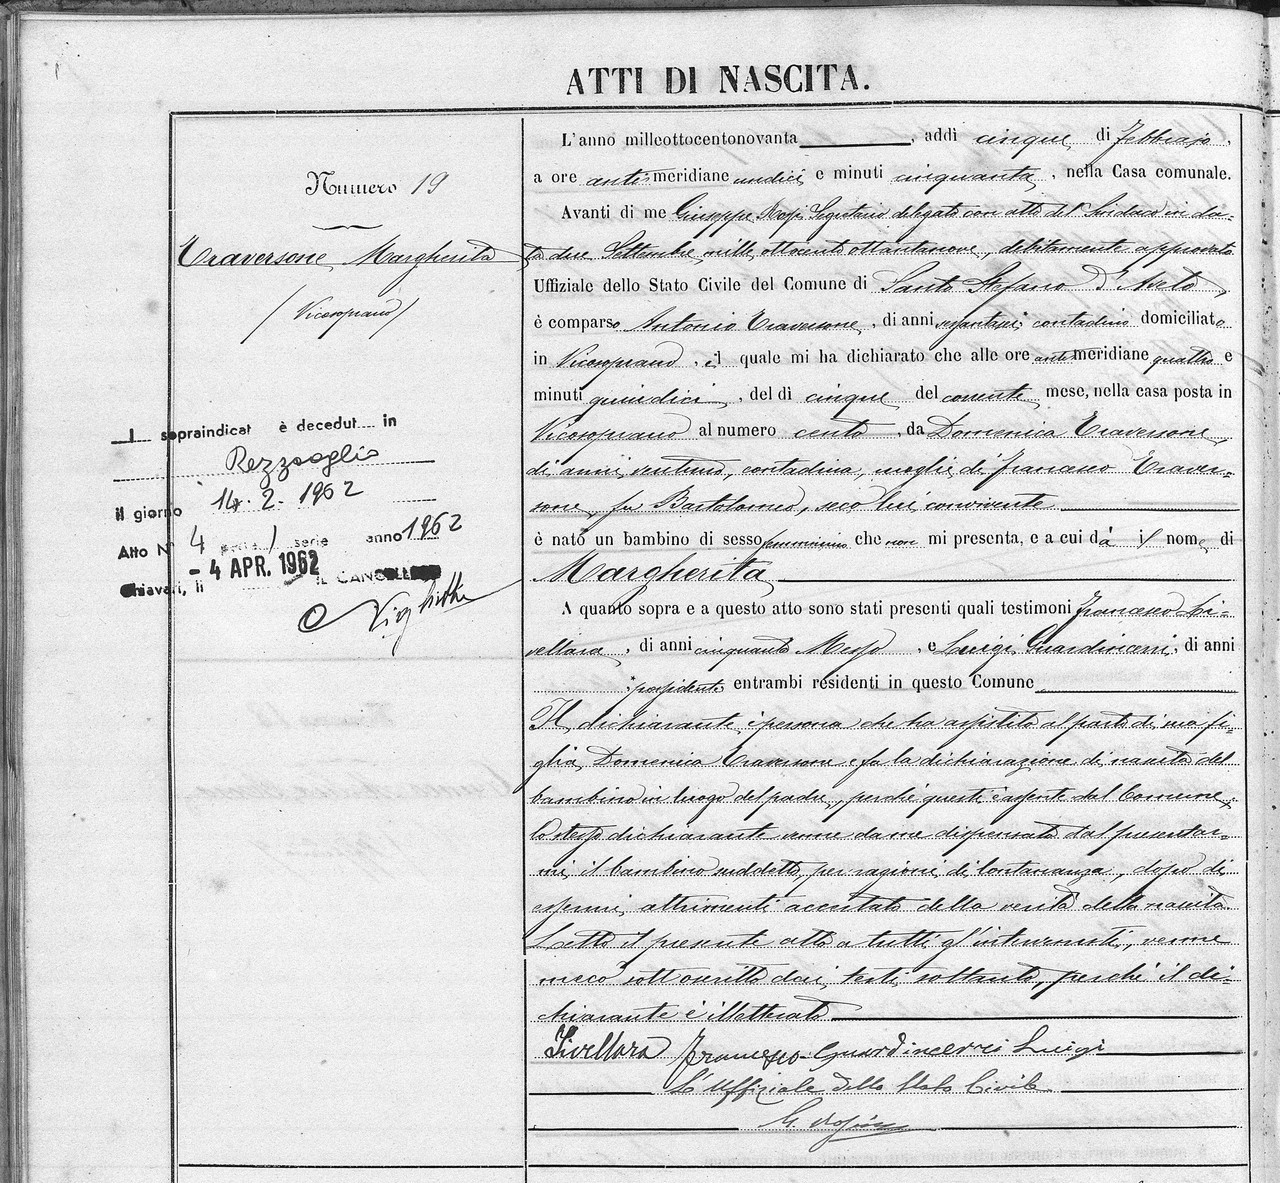 ATTI DI NASCITA.
Numero 19
Traversone Margherita
(Vicosoprano)
I sopraindicat è decedut in
Rezzoaglio
il giorno 14. 2. 1962
Atto N° 4 parte I serie anno 1962
- 4 APR. 1962
Chiavari, lì IL CANCELLIERE
L'anno milleottocentonovanta, addì cinque di Febbraio,
a ore anti meridiane undici e minuti cinquanta, nella Casa comunale.
Avanti di me Giuseppe Rossi Segretario delegato con atto del Sindaco in da-
ta due Settembre mille ottocento ottantanove, debitamente approvato
Uffiziale dello Stato Civile del Comune di Santo Stefano d'Aveto,
è comparso Antonio Traversone, di anni contadino domiciliato
in Vicosoprano, il quale mi ha dichiarato che alle ore anti meridiane quattro e
minuti quindici, del dì cinque del corrente mese, nella casa posta in
Vicosoprano al numero cento, da Domenica Traversone
di anni ventuno, contadina, moglie di Francesco Traver-
sone fu Bartolomeo, seco lui convivente
è nato un bambino di sesso femminino che non mi presenta, e a cui dà il nome di
Margherita
A quanto sopra e a questo atto sono stati presenti quali testimoni Francesco Li-
vellara, di anni cinquanta Messo, e Luigi Guardincerri, di anni
possidente entrambi residenti in questo Comune
Il dichiarante, persona che ha assistito al parto di sua fi-
glia Domenica Traversone e fa la dichiarazione di nascita del
bambino in luogo del padre, perchè questi è assente dal Comune.
Lo stesso dichiarante venne da me dispensato dal presentar-
mi il bambino suddetto, per ragioni di lontananza, dopo di
essermi altrimenti accertato della verità della nascita.
Letto il presente atto a tutti gl'intervenuti, venne
meco sottoscritto dai testi soltanto, perchè il di-
chiarante è illetterato
Livellara Francesco - Guardincerri Luigi
L'Uffiziale dello Stato Civile
G. Rossi